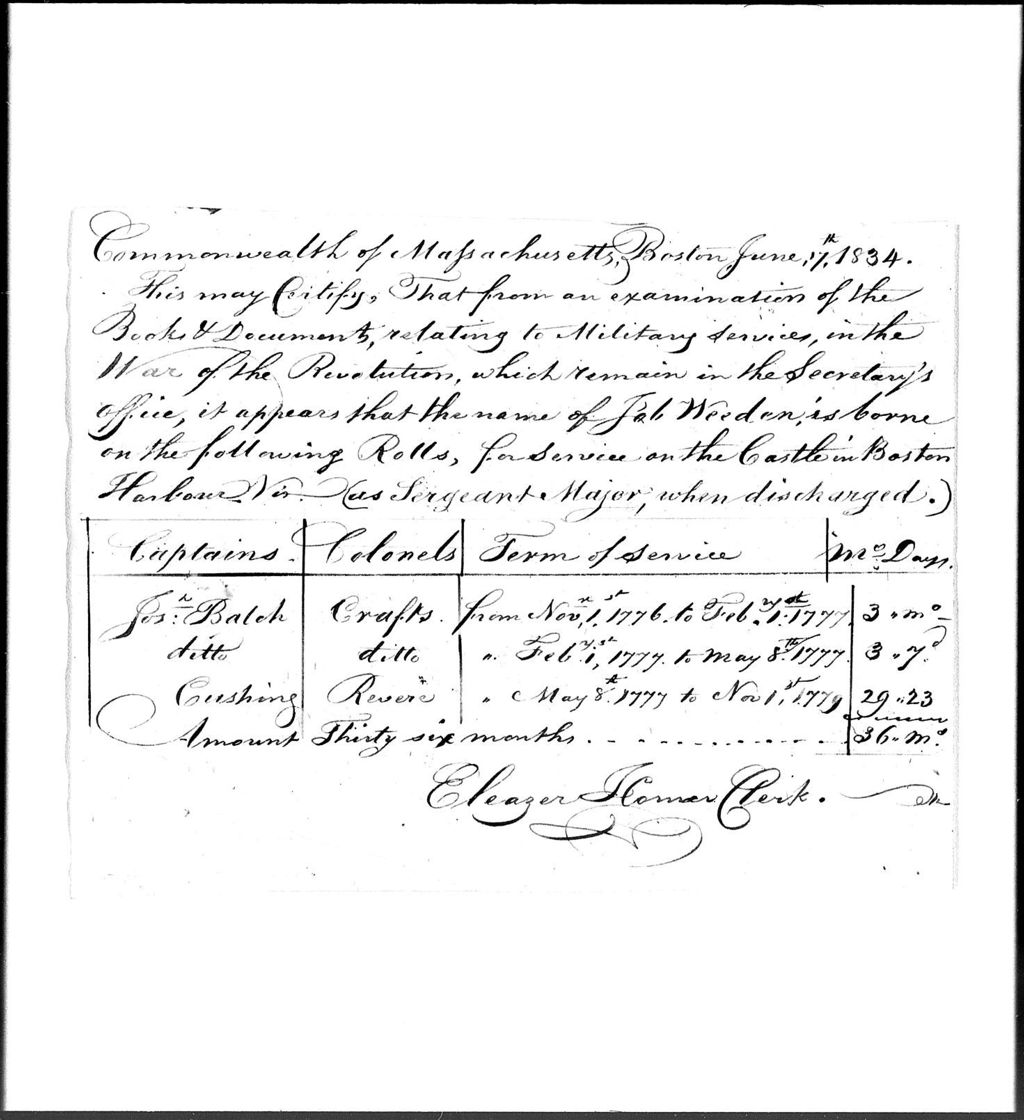 Commonwealth of Massachusetts, Boston June, 17th, 1834.
This may Certify, That from an examination of the
Books & Documents, relating to Military services, in the
War of the Revolution, which remain in the Secretary's
office, it appears that the name of Job Weeden, is borne
on the following Rolls, for service on the Castle in Boston
Harbour Viz. (as Sergeant Major, when discharged.)
Captains. Colonels Term of service Mo. Days.
Josh. Balch Crafts. from Novr. 1. 1776. to Feby. 1st. 1777. 3 " mo
ditto ditto " Feby. 1st, 1777. to May 8th. 1777. 3 " 7d.
Cushing Revere " May 8th. 1777 to Nov 1st, 1779 29 " 23
Amount Thirty six months. 36 " mo.
Eleazer Homer Clerk.